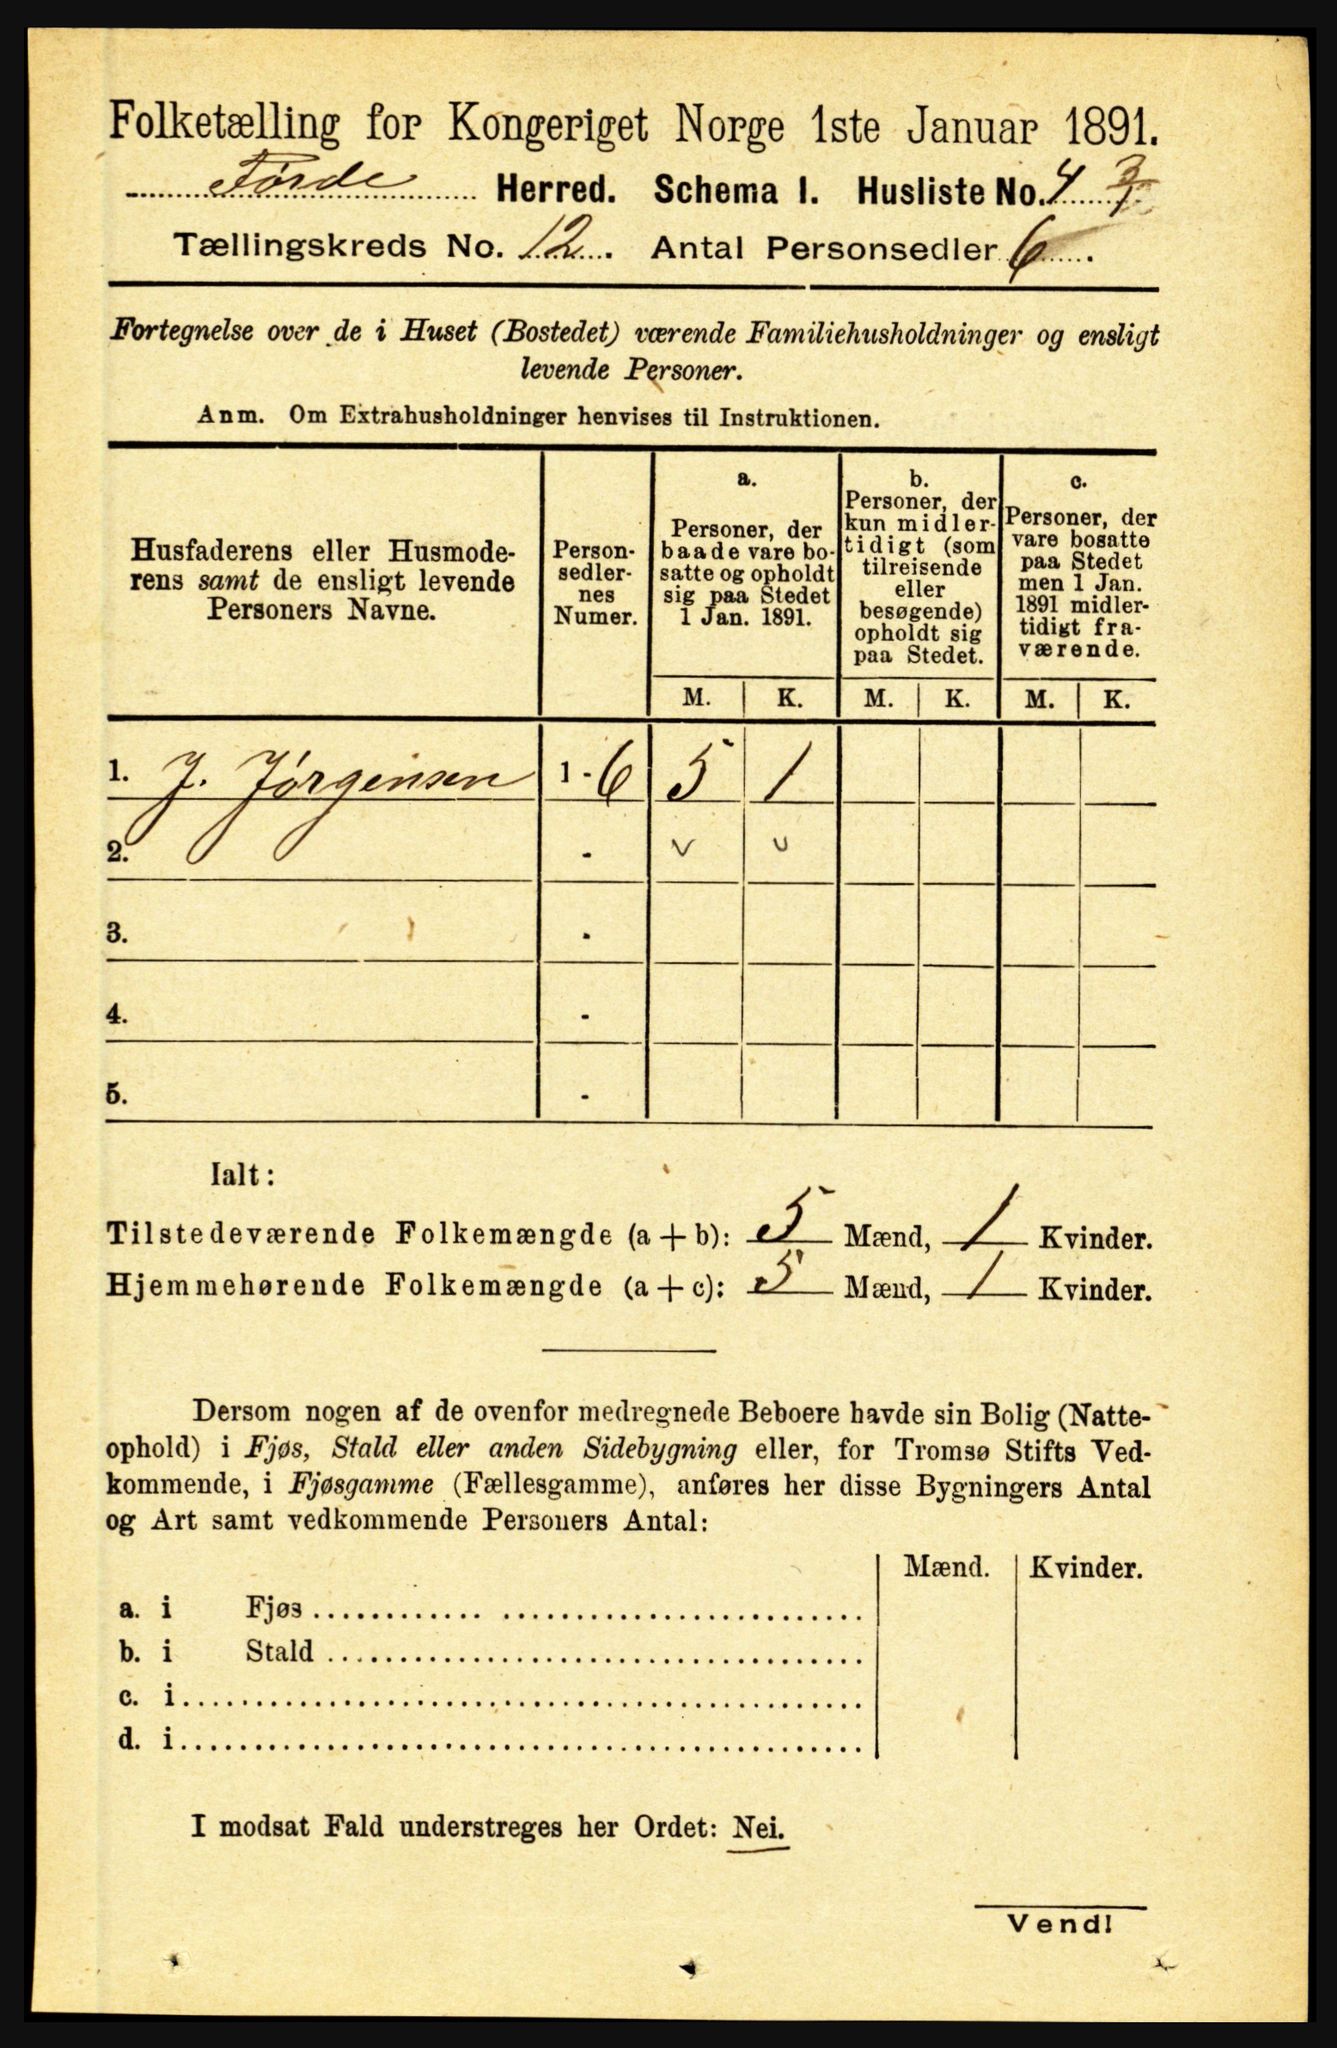 Folketælling for Kongeriget Norge 1ste Januar 1891.
Førde Herred. Schema I. Husliste No. 4
Tællingskreds No. 12. Antal Personsedler 6.
Fortegnelse over de i Huset (Bostedet) værende Familiehusholdninger og ensligt
levende Personer.
Anm. Om Extrahusholdninger henvises til Instruktionen.
Husfaderens eller Husmode-
rens samt de ensligt levende
Personers Navne.
Person-
sedler-
nes
Numer.
a.
Personer, der
baade vare bo-
satte og opholdt
sig paa Stedet
1 Jan. 1891.
b.
Personer, der
kun midler-
tidigt (som
tilreisende
eller
besøgende)
opholdt sig
paa Stedet.
c.
Personer, der
vare bosatte
paa Stedet
men 1 Jan.
1891 midler-
tidigt fra-
værende.
M. K. M. K. M. K.
1. J. Jørgensen 1 - 6 5 1
2. - v v
3. -
4. -
5. -
Ialt:
Tilstedeværende Folkemængde (a + b): 5 Mænd, 1 Kvinder.
Hjemmehørende Folkemængde (a + c): 5 Mænd, 1 Kvinder.
Dersom nogen af de ovenfor medregnede Beboere havde sin Bolig (Natte-
ophold) i Fjøs, Stald eller anden Sidebygning eller, for Tromsø Stifts Ved-
kommende, i Fjøsgamme (Fællesgamme), anføres her disse Bygningers Antal
og Art samt vedkommende Personers Antal:
Mænd. Kvinder.
a. i Fjøs
b. i Stald
c. i
d. i
I modsat Fald understreges her Ordet: Nei.
Vend!